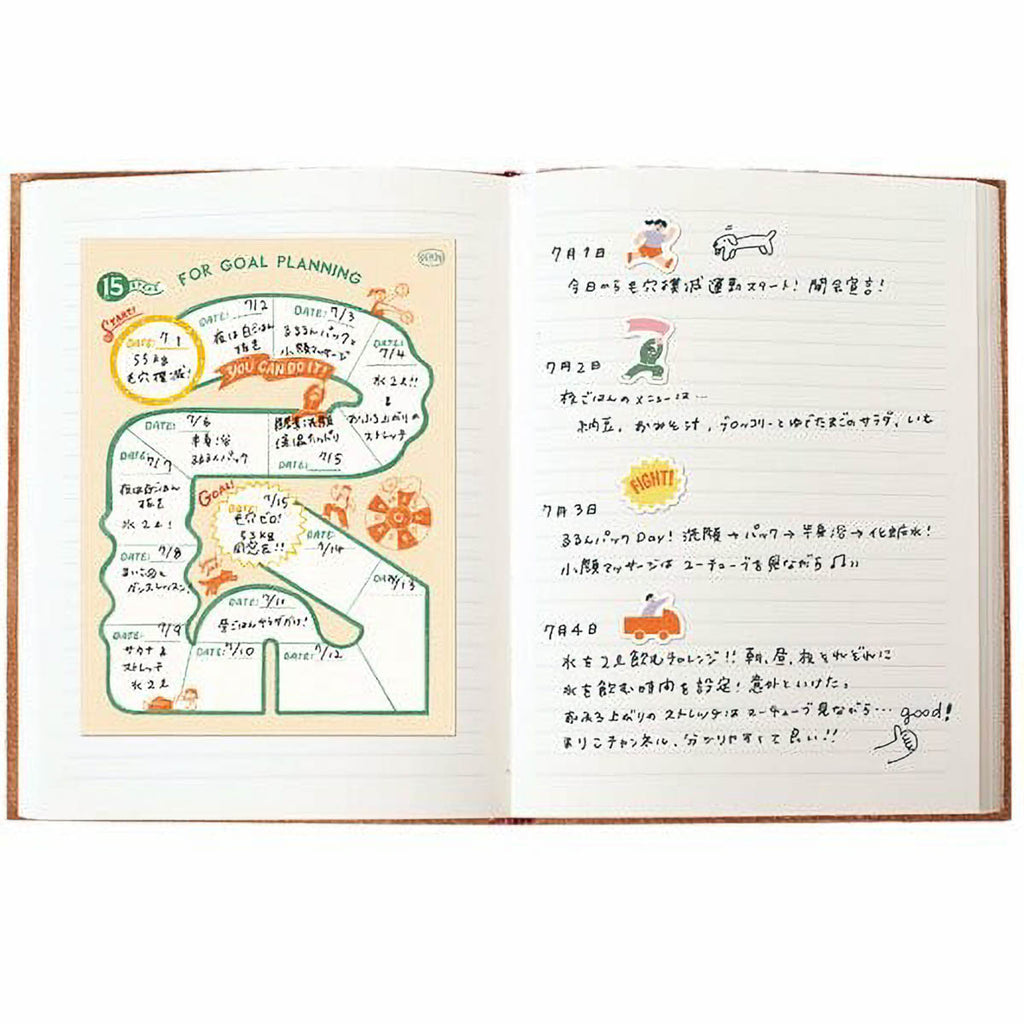 15
FOR GOAL PLANNING
START!
DATE: 7/1
53kg
毛穴撲滅!
DATE: 7/2
夜は白ごはん
抜き
DATE: 7/3
るるるんパックと
小顔マッサージ
DATE:
7/4
水2L!!
&
おふろ上がりの
ストレッチ
YOU CAN DO IT!
洗顔
保湿たっぷり
DATE: 7/5
DATE: 7/6
半身浴
るるるんパック
DATE: 7/7
夜は白ごはん
抜き
水2L!
DATE: 7/8
ダンスレッスン!
DATE: 7/9
サウナ&
ストレッチ
水2L
DATE: 7/10
DATE: 7/11
昼ごはんサラダだけ!
DATE: 7/12
DATE: 7/13
DATE: 7/14
GOAL!
DATE: 7/15
毛穴ゼロ!
53kg
同窓会!!
7月1日
今日から毛穴撲滅運動スタート! 開会宣言!
7月2日
夜ごはんのメニューは…
納豆、おみそ汁、ブロッコリーとゆでたまごのサラダ、いも
FIGHT!
7月3日
るるんパックDay! 洗顔→パック→半身浴→化粧水!
小顔マッサージはユーチューブを見ながら♫♪
7月4日
水を2L飲むチャレンジ!! 朝、昼、夜それぞれに
水を飲む時間を設定! 意外といけた。
おふろ上がりのストレッチはユーチューブ見ながら… good!
まりこチャンネル、分かりやすくて良い!!